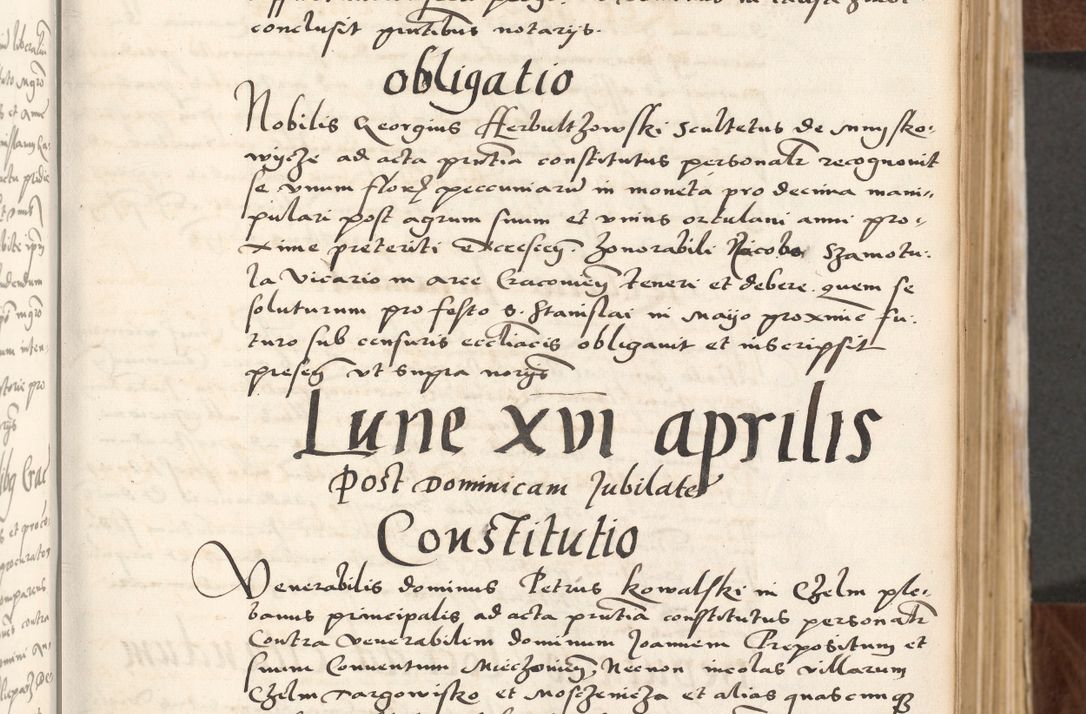 conclusit pntibus notarijs.
obligatio
Nobilis Georgius Herbultzowski Scultetus de Mnysko-
wycze ad acta pntia constitutus personalr recognovit
se vnum floren peccuniaru in moneta pro decima mani-
pulari post agrum suum et vnius ortulani anni pro-
xime preteriti excrescen. honorabili Jacobo Szamotu-
la Vicario in arce Cracovien teneri et debere. quem se
soluturum pro festo S. Stanislai in Mayo proxime fu-
turo sub censuris eccliacis obligavit et inscripsit
presen vt supra norijs
Lune XVI aprilis
Post Dominicam Jubilate
Constitutio
Venerabilis dominus Petrus Kowalski in Chelm ple-
banus principalis ad acta pntia constitutus personalr
Contra venerabilem dominum Joannem Prepositum et
suum Conventum Miechovien, Necnon incolas villarum
Chelm Targowisko et Moschenicza et alias quascunq